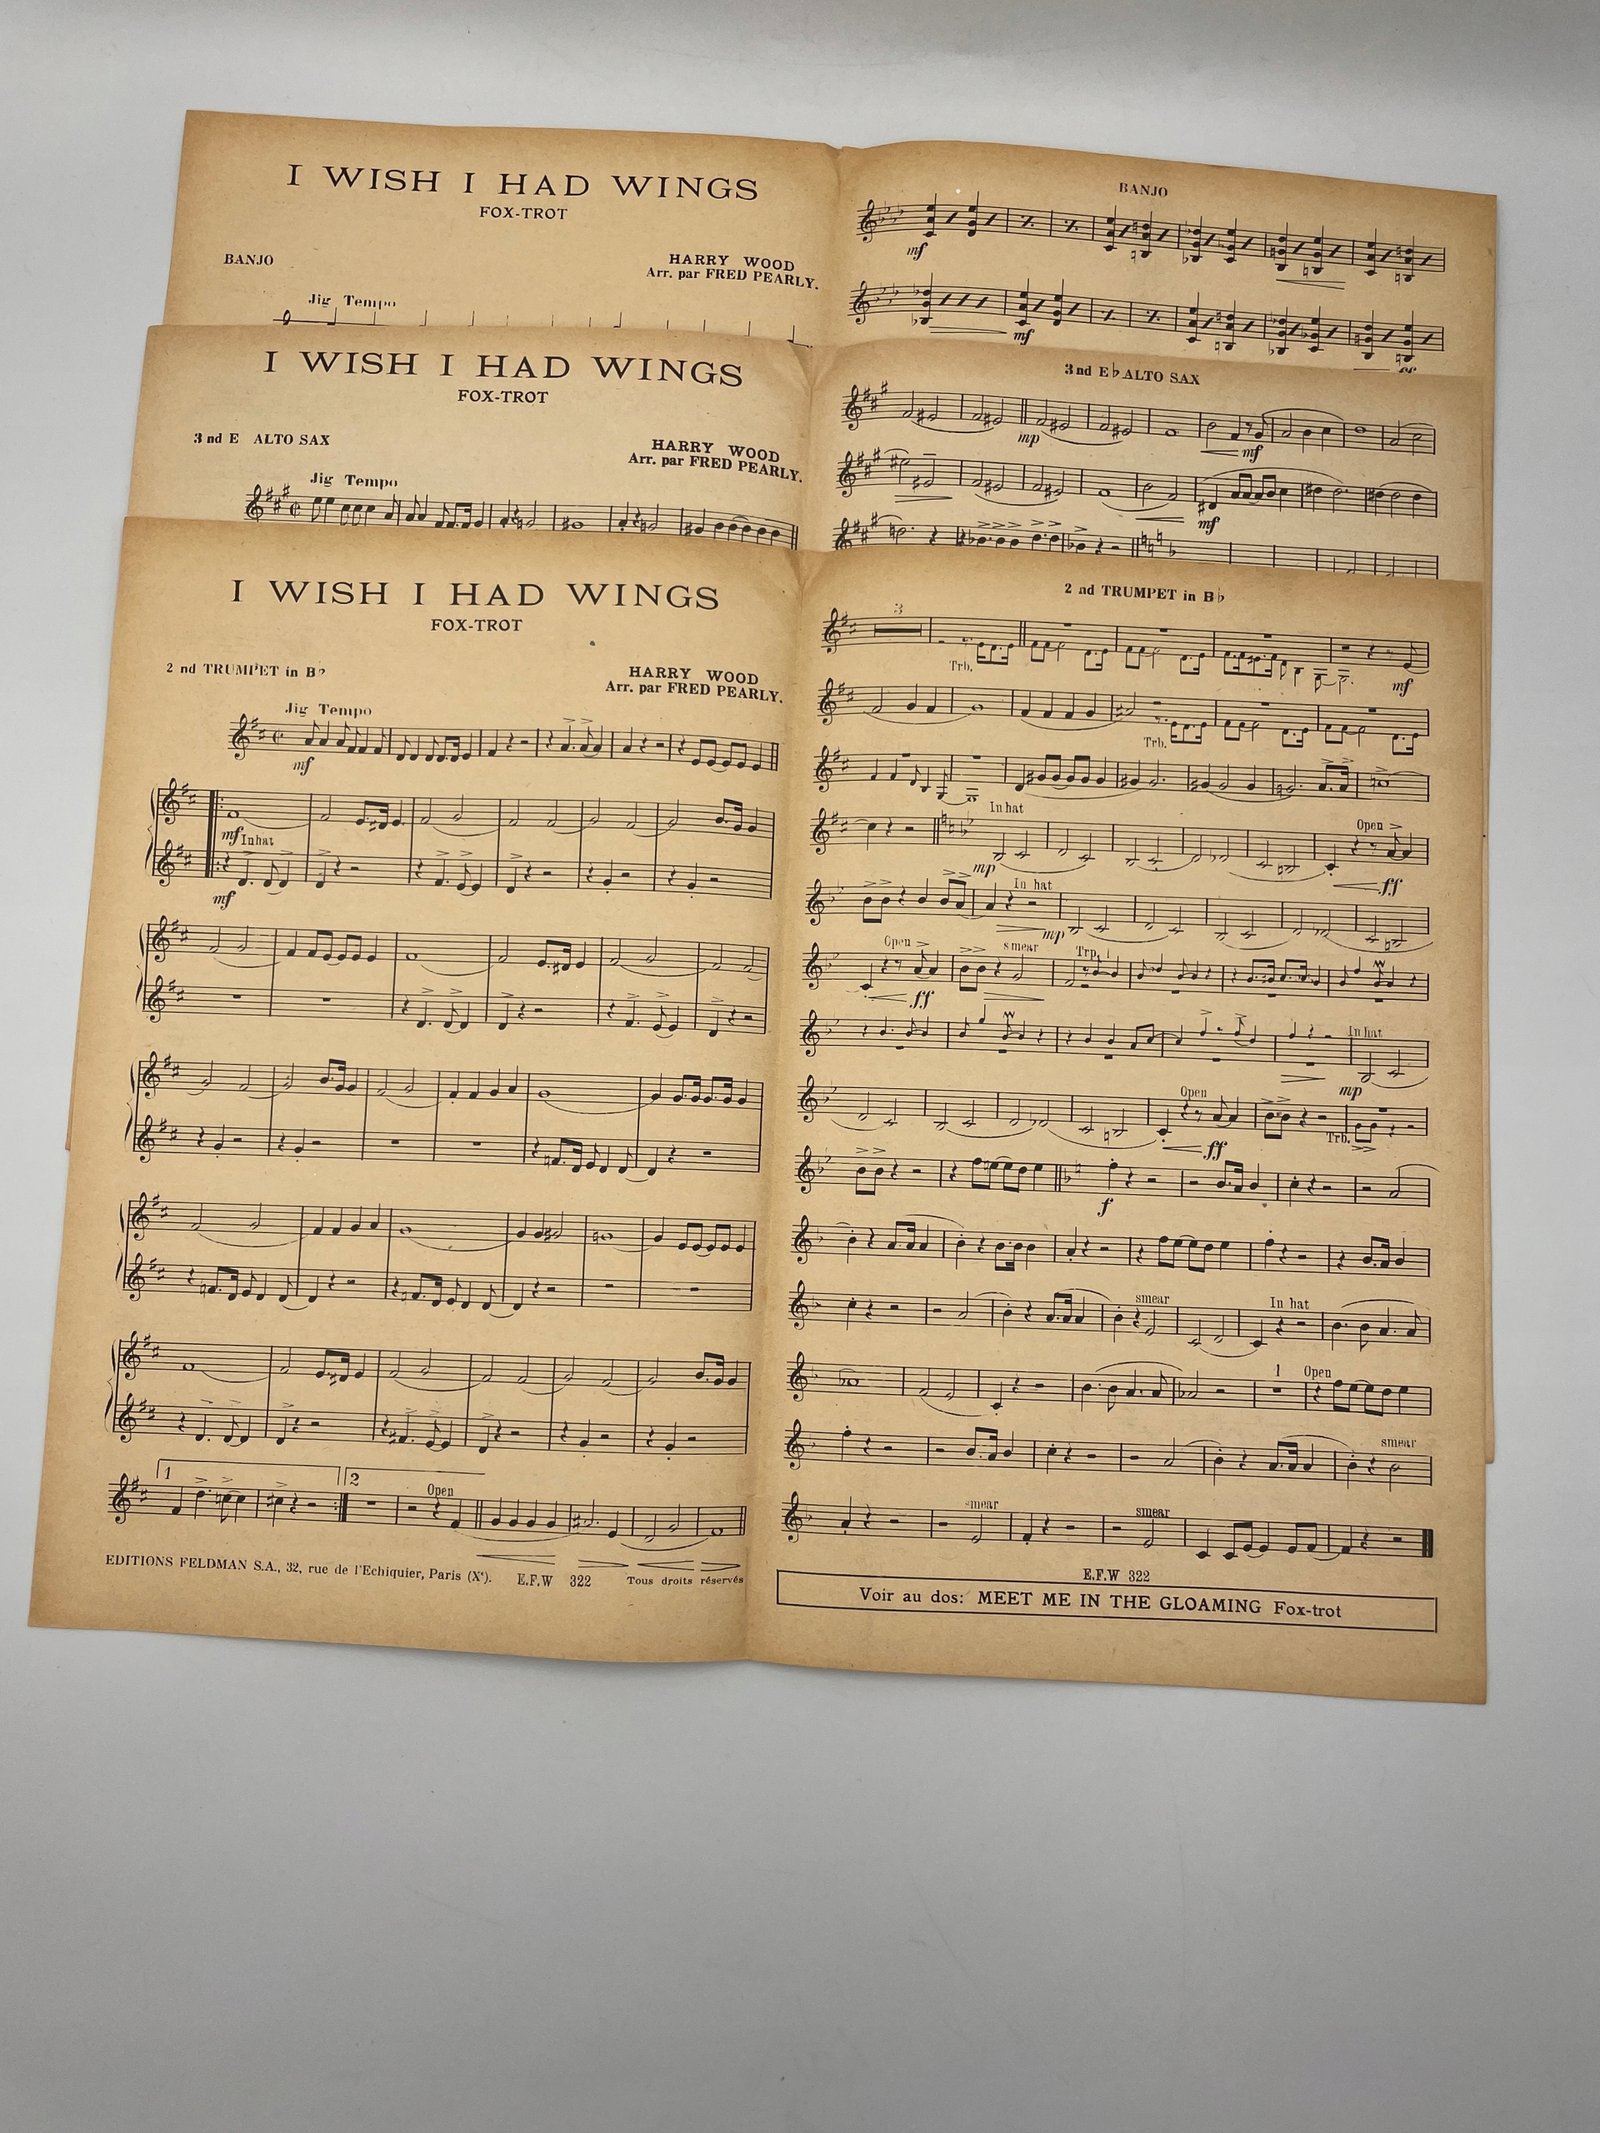 I WISH I HAD WINGS
FOX-TROT
BANJO
HARRY WOOD
Arr. par FRED PEARLY.
Jig Tempo
BANJO
mf
mf
I WISH I HAD WINGS
FOX-TROT
3 nd E ALTO SAX
HARRY WOOD
Arr. par FRED PEARLY.
Jig Tempo
3nd E♭ ALTO SAX
mp
mf
mf
I WISH I HAD WINGS
FOX-TROT
2 nd TRUMPET in B♭
HARRY WOOD
Arr. par FRED PEARLY.
Jig Tempo
mf
mf In hat
mf
1
2
Open
EDITIONS FELDMAN S.A., 32, rue de l'Echiquier, Paris (Xe). E.F.W 322 Tous droits réservés
2 nd TRUMPET in B♭
3
Trb.
mf
Trb.
In hat
Open
mp
ff
In hat
mp
Open
smear
Trp.
ff
In hat
mp
Open
ff
Trb.
f
smear
In hat
1
Open
smear
smear
smear
E.F.W 322
Voir au dos: MEET ME IN THE GLOAMING Fox-trot